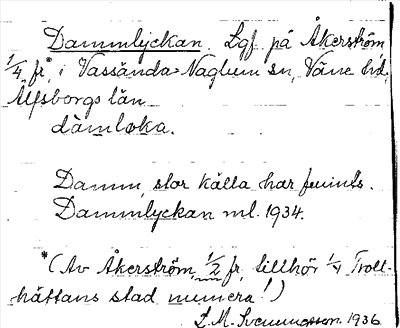 Dammlyckan. Lgf. på Åkerström
1/4 fr*, i Vassända-Naglum sn, Väne hd,
Älfsborgs län
dàmløka.
Damm, stor källa har funnits.
Dammlyckan ml. 1934.
*(Av Åkerström, 1/2 fr, tillhör 1/4 Troll-
hättans stad numera!)
L. M. Svenungsson 1936